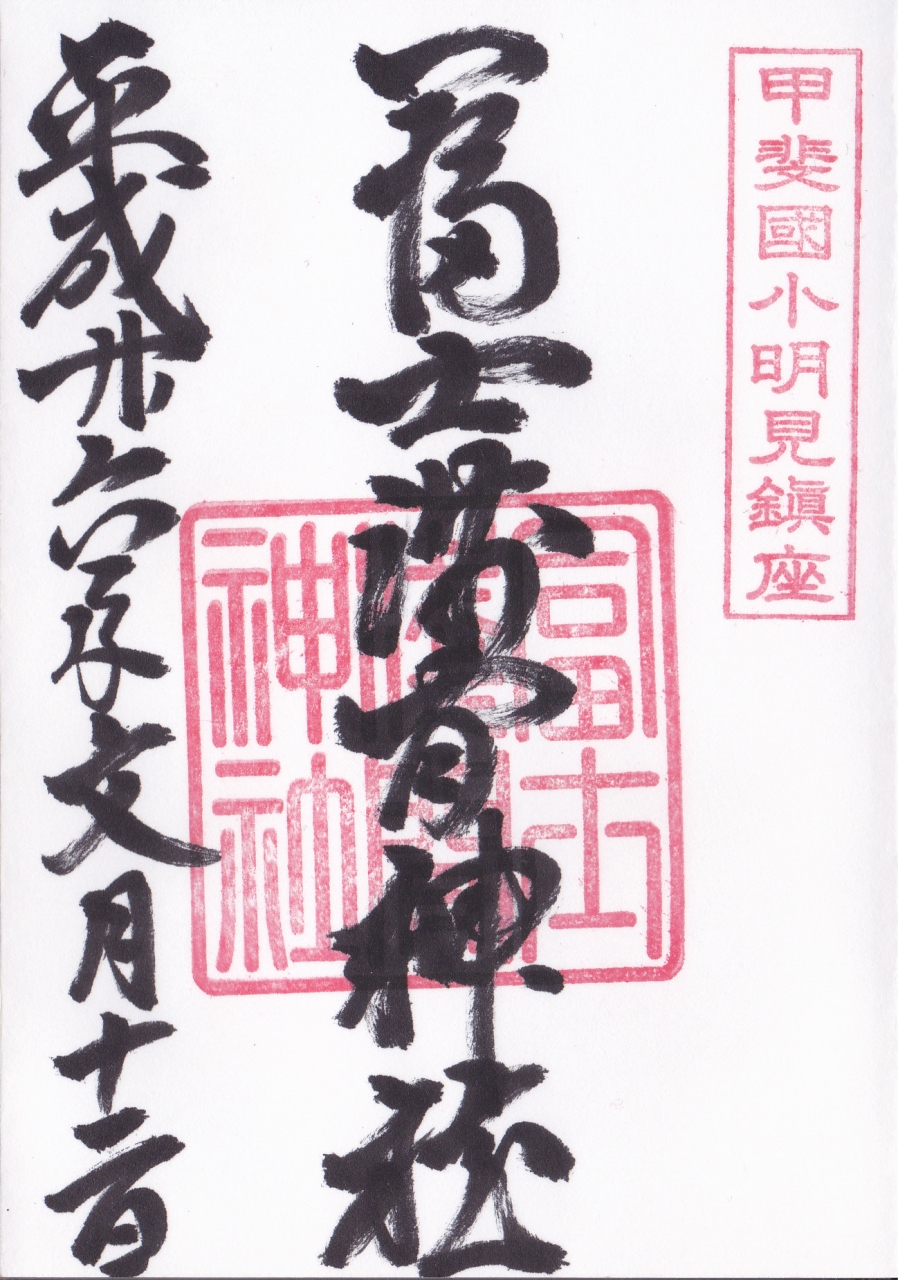 甲斐國小明見鎮座
冨士淺間神社
冨士
淺間
神社
平成廿六年文月十二日